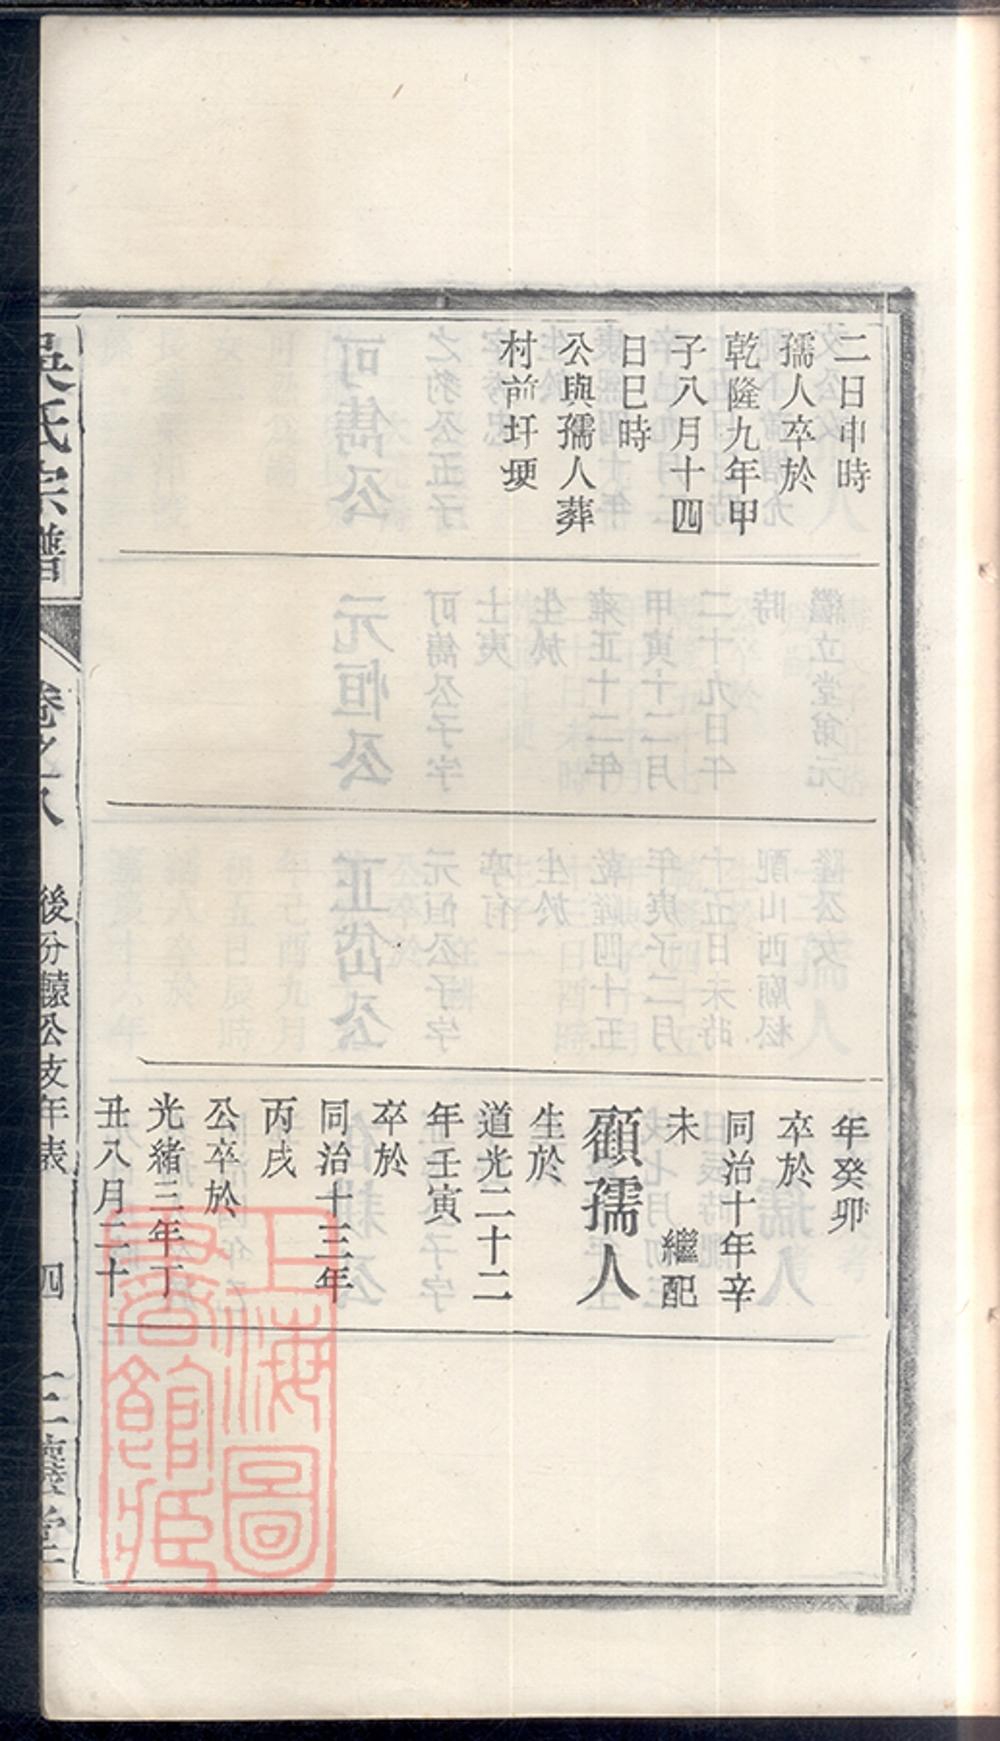 二日申時
孺人卒於
乾隆九年甲
子八月十四
日巳時
公與孺人葬
村前圩埂
年癸卯
卒於
同治十年辛
未　繼配
顧孺人
生於
道光二十二
年壬寅
卒於
同治十三年
丙戌
公卒於
光緒三年丁
丑八月二十
吳氏宗譜
卷之八
後分轅公支年表
四
三讓堂
上海圖書館藏